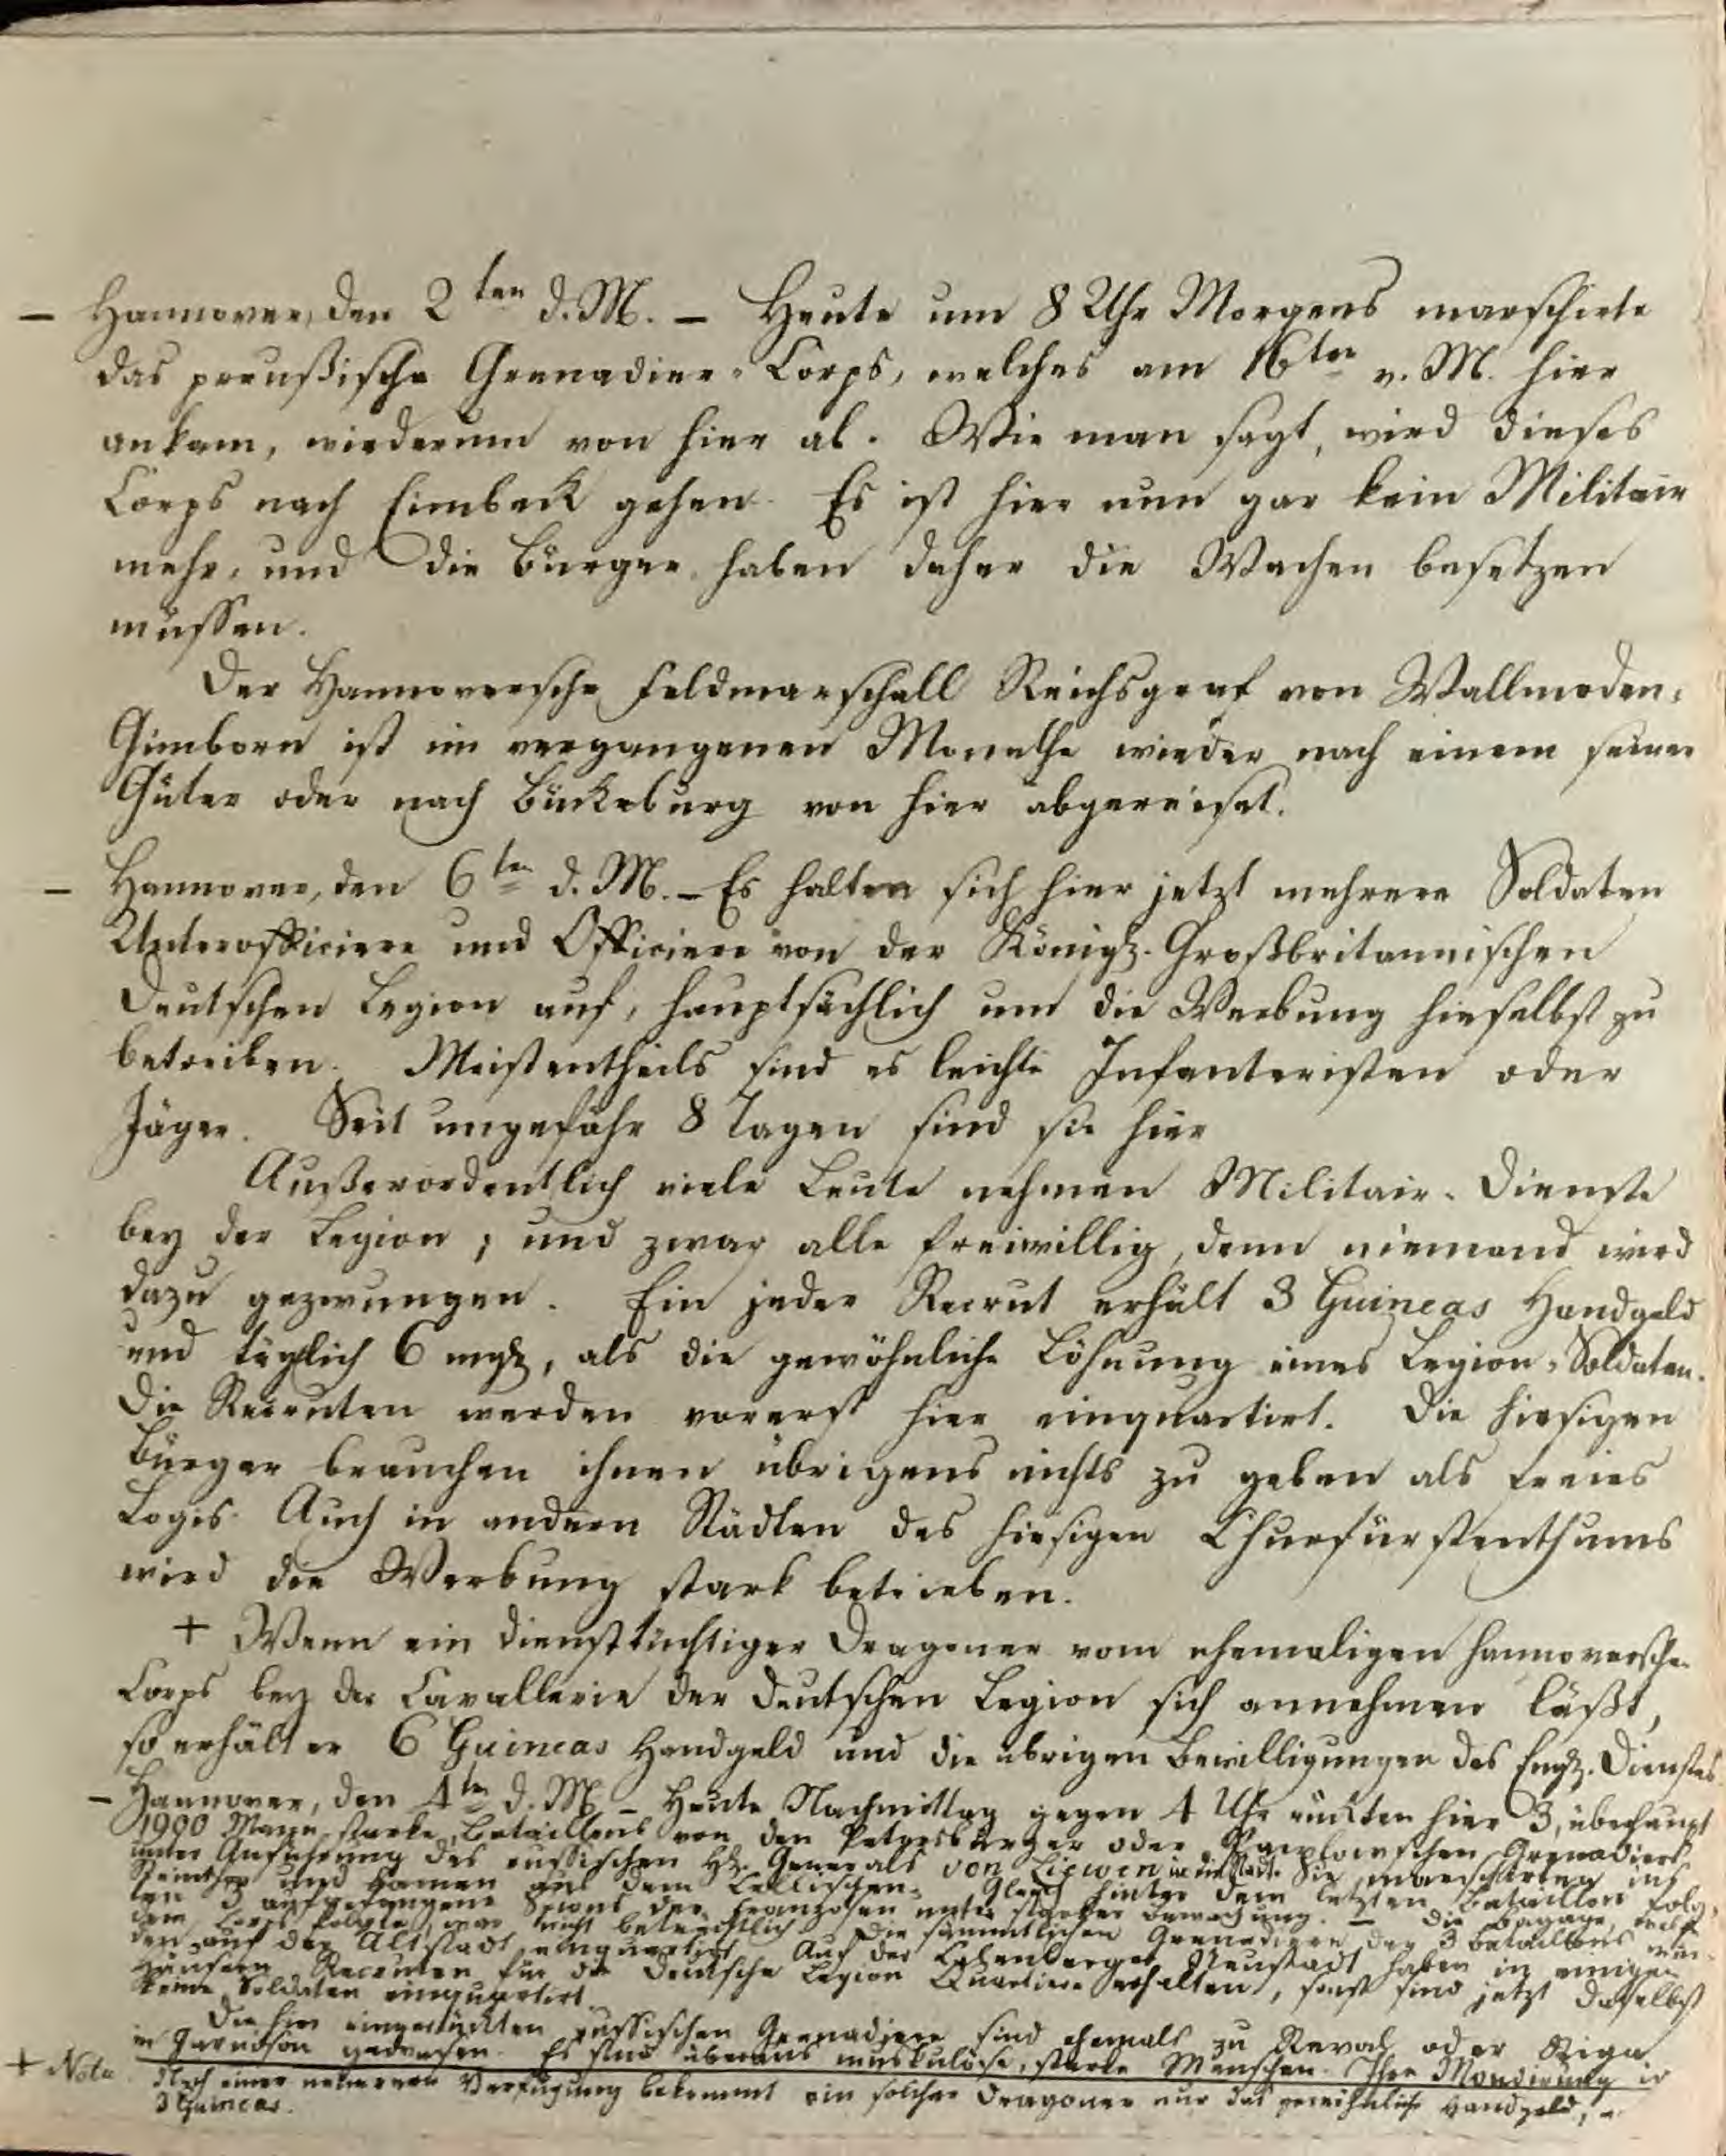 – Hannover, den 2ten d. M. – Heute um 8 Uhr Morgens marschirte
das preußische Grenadier-Corps, welches am 16ten v. M. hier
ankam, wiederum von hier ab. Wie man sagt, wird dieses
Corps nach Eimbeck gehen. Es ist hier nun gar kein Militair
mehr, und die Bürger haben daher die Wachen besetzen
müssen.
Der Hannoversche Feldmarschall Reichsgraf von Wallmoden-
Gimborn ist im vergangenen Monathe wieder nach einem seiner
Güter oder nach Bückeburg von hier abgereiset.
– Hannover, den 6ten d. M. – Es halten sich hier jetzt mehrere Soldaten
Unterofficiere und Officiere von der Königl. Großbritannischen
Deutschen Legion auf, hauptsächlich um die Werbung hieselbst zu
betreiben. Meistentheils sind es leichte Infanteristen oder
Jäger. Seit ungefähr 8 Tagen sind sie hier
Außerordentlich viele Leute nehmen Militair-Dienste
bey der Legion; und zwar alle freiwillig, denn niemand wird
dazu gezwungen. Ein jeder Recrut erhält 3 Guineas Handgeld
und täglich 6 mgl, als die gewöhnliche Löhnung eines Legion-Soldaten.
Die Recruten werden vorerst hier einquartirt. Die hiesigen
Bürger brauchen ihnen übrigens nichts zu geben als freies
Logis. Auch in andern Städten des hiesigen Churfürstenthums
wird die Werbung stark betrieben.
+ Wenn ein diensttüchtiger Dragoner vom ehemaligen hannoverschen
Corps bey der Cavallerie der deutschen Legion sich annehmen läßt,
so erhält er 6 Guineas Handgeld und die übrigen Bewilligungen des Engl. Dienstes
– Hannover, den 4ten d. M. – Heute Nachmittag gegen 4 Uhr rückten hier 3, überhaupt
1900 Mann starke, Bataillons von den Petersburger oder Pawplowschen Grenadiers
unter Anführung des russischen H. Generals von Liewen in die Stadt. Sie marschirten ins
Steinthor und kamen aus dem Cellischen. Gleich hinter dem letzten Bataillon folg-
ten 3 aufgefangene Spions der Franzosen unter starker Bewachung. – Die Bagage, welche
dem Corps folgte, war nicht beträchtlich. Die sämmtlichen Grenadiere der 3 Bataillons wur-
den auf der Altstadt einquartirt. Auf der Calenberger Neustadt haben in einigen
Häusern Recruten für die Deutsche Legion Quartiere erhalten, sonst sind jetzt daselbst
keine Soldaten einquartirt.
Die hier eingerückten russischen Grenadiere sind ehemals zu Reval oder Riga
in Garnison gewesen. Es sind überaus muskulöse, starke Menschen. Ihre Mondirung ist
+ Nota Nach einer neueren Verfügung bekommt ein solcher Dragoner nur das gewöhnliche Handgeld,
3 Guineas.